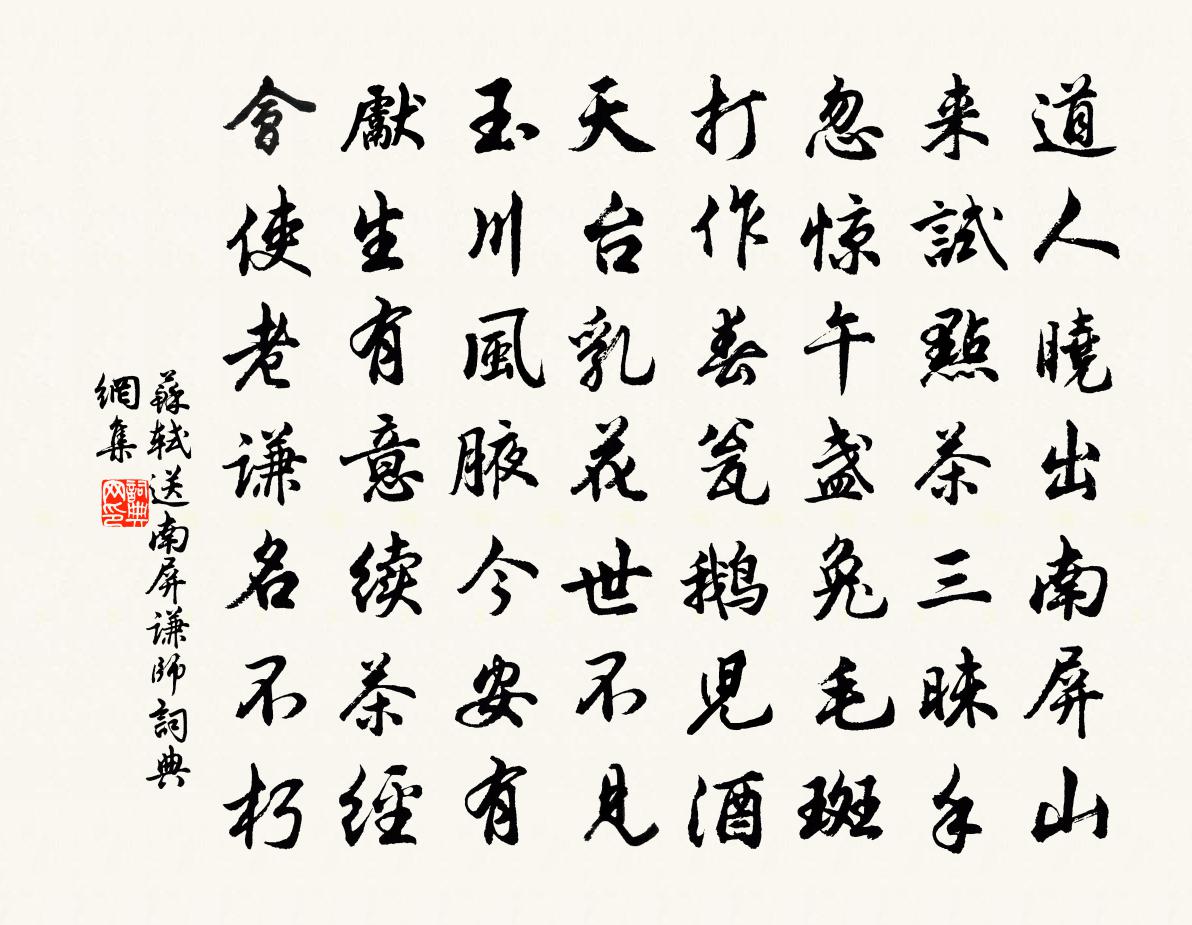 道人曉出南屏山
来試點茶三昧手
忽惊午盏兔毛斑
打作春瓮鹅児酒
天台乳花世不見
玉川風腋今安有
獻生有意续茶經
會使老謙名不朽
蘇轼送南屏謙師詞典
網集
詞典网印